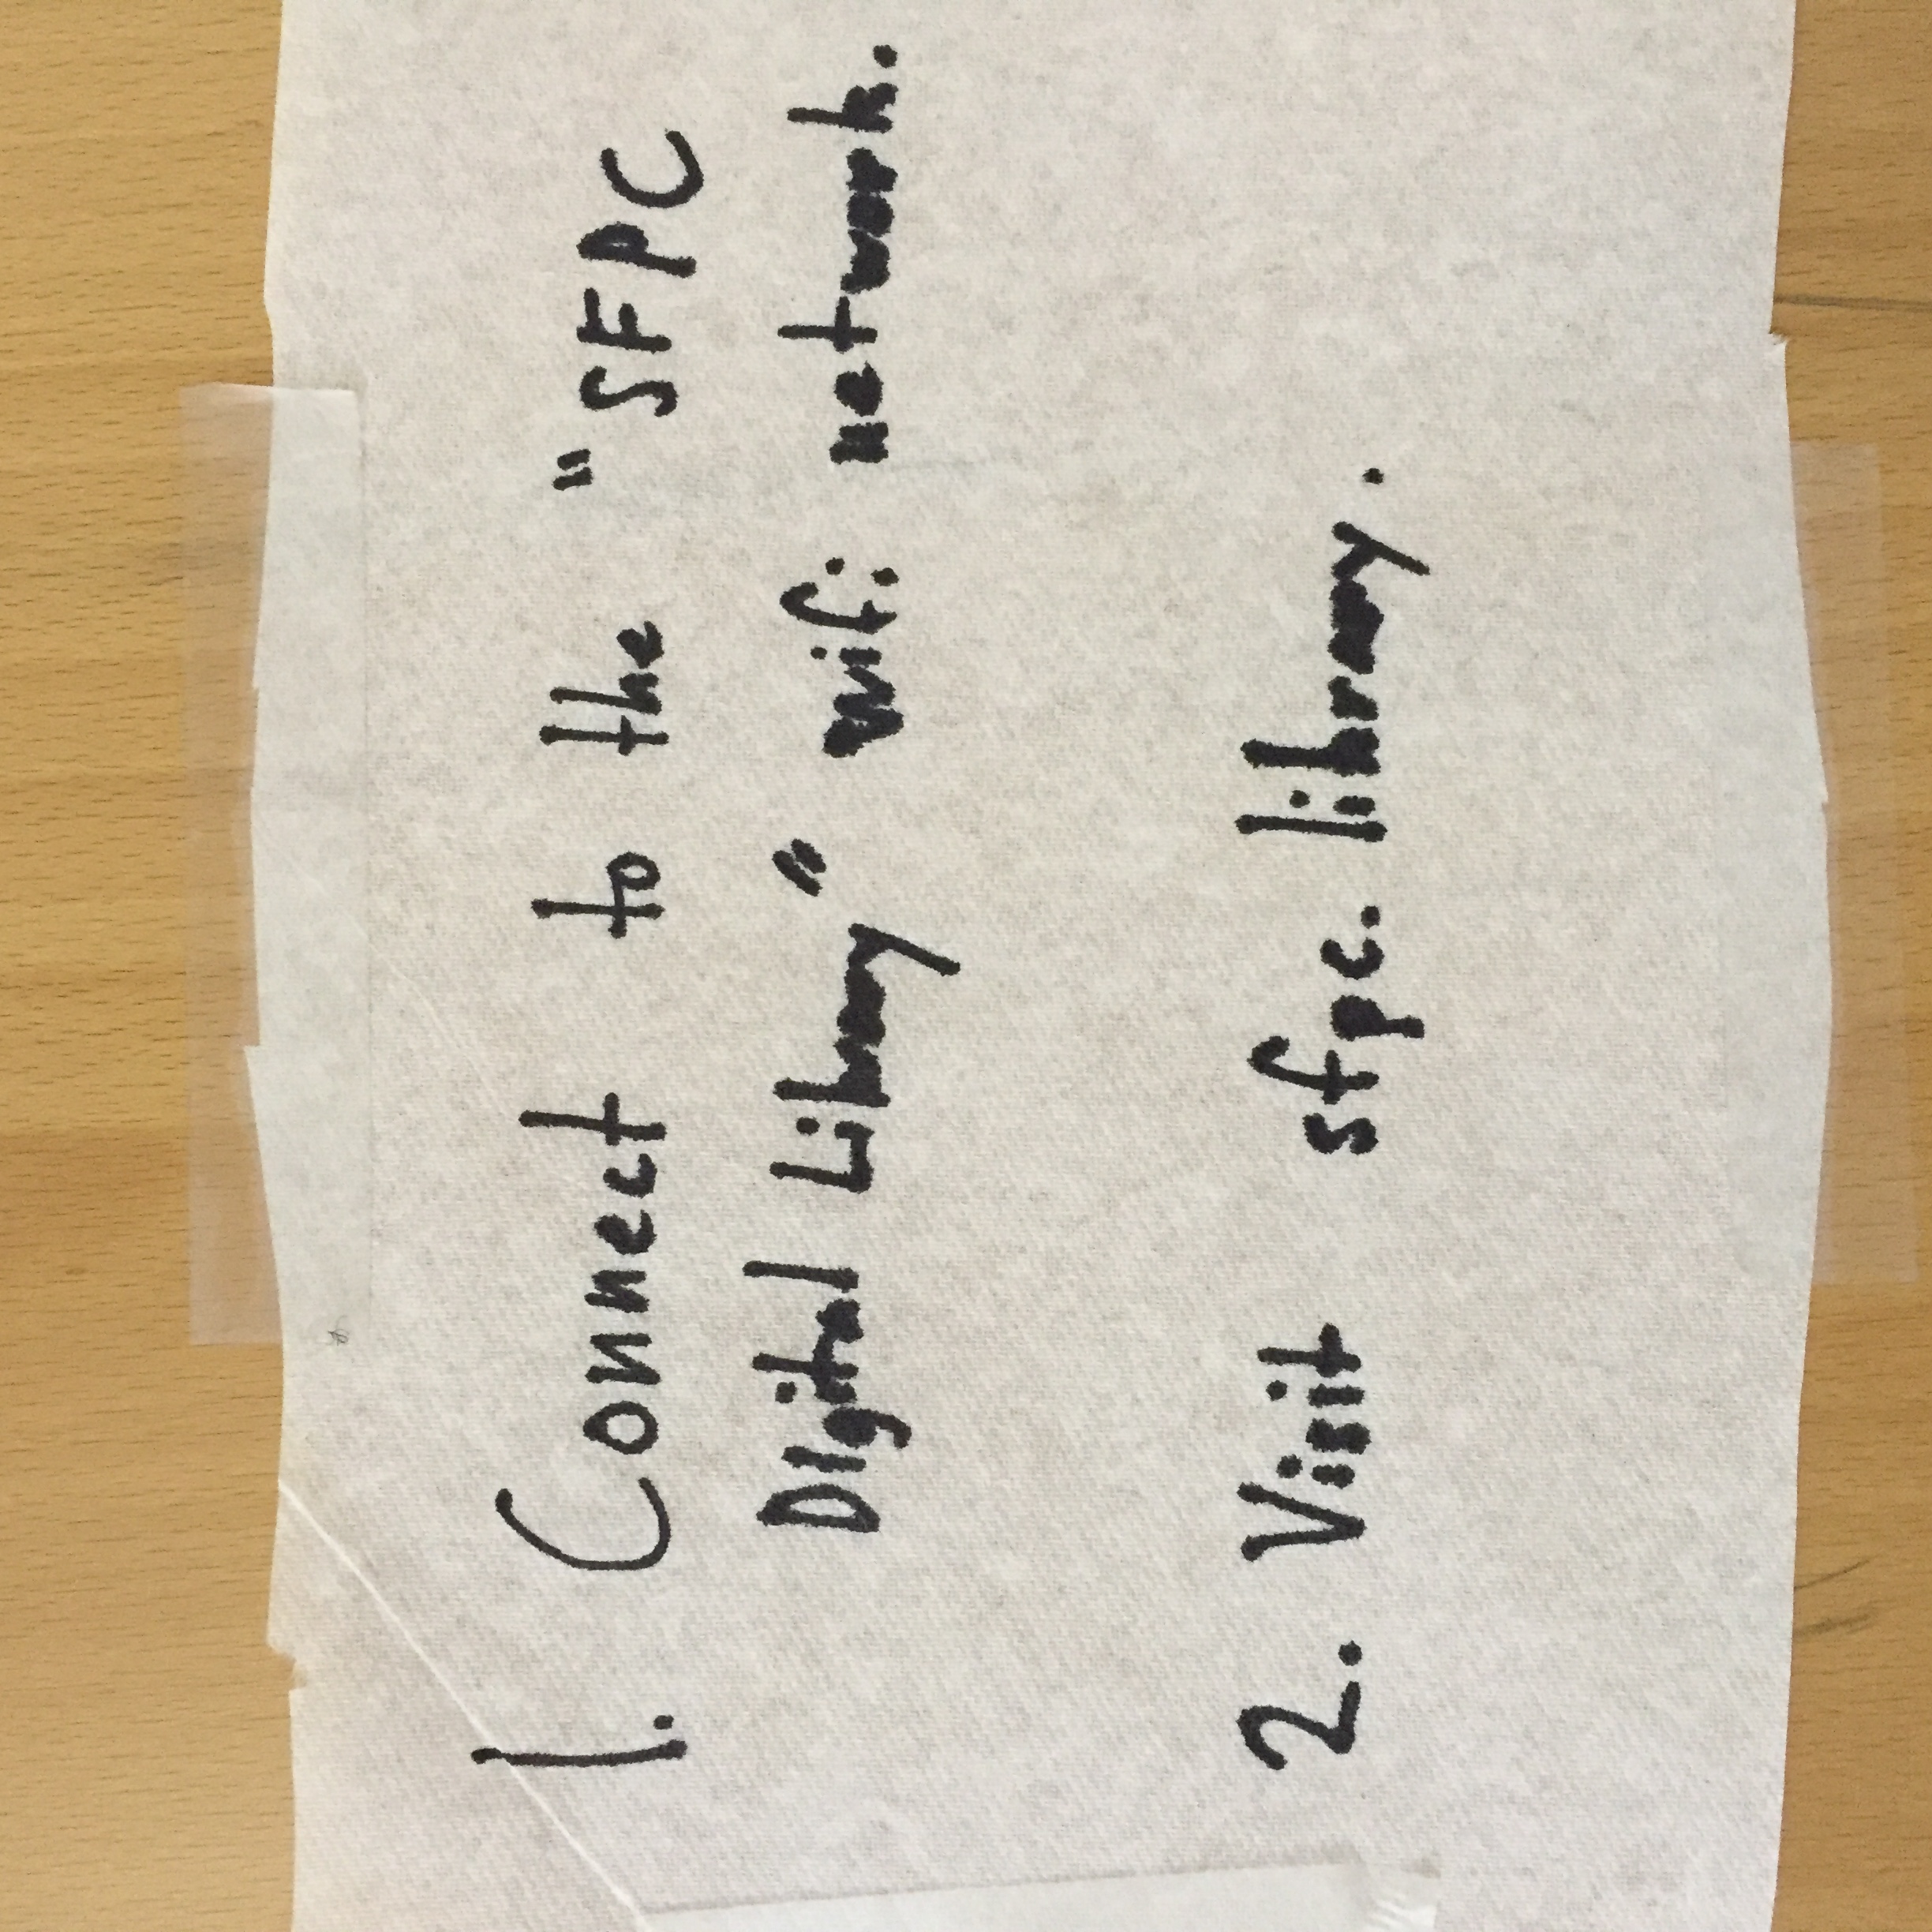 1. Connect to the "SFPC
Digital Library" wifi network.
2. Visit sfpc.library.